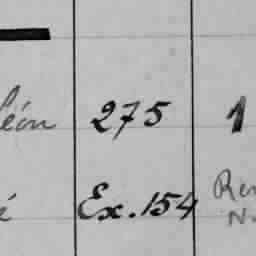 léon 275 1
é Ex. 154 Ren
N.